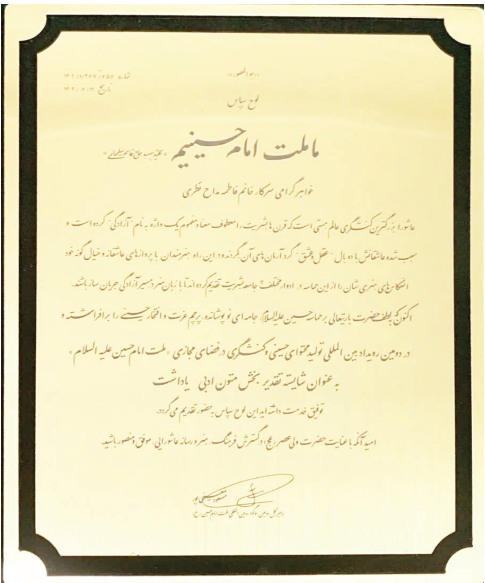 «هو المصور»
شماره
تاریخ
لوح سپاس
ما ملت امام حسینیم
«شهید حاج قاسم سلیمانی»
خواهر گرامی سرکار خانم فاطمه مداح نظری
عاشورا بزرگترین کنشگری عالم هستی است که قرن ها بشریت را معطوف معنا و مفهوم یک واژه به نام "آزادگی" کرده است و
سبب شده عاشقانش با دو بال "عقل و عشق" گرد آرمان های آن بگردند و در این راه هنرمندان با پروازهای عاشقانه و خیال گونه خود
انعکاس های هنری شان را از این حماسه در ادوار مختلف به جامعه بشریت تقدیم کرده اند تا با زبان هنر در مسیر آزادگی جریان ساز باشند.
اکنون که به لطف حضرت باریتعالی بر حماسه حسین علیه السلام جامه ای نو پوشانده و پرچم عزت و افتخار حسینی را برافراشته و
در دومین رویداد بین المللی تولید محتوای حسینی و کنشگری در فضای مجازی «ملت امام حسین علیه السلام»
به عنوان شایسته تقدیر بخش متون ادبی یاداشت
توفیق خدمت داشته اید این لوح سپاس به حضور تقدیم می گردد.
امید آنکه با عنایت حضرت ولی عصر (عج) در گسترش فرهنگ، هنر و رسانه عاشورایی موفق و منصور باشید.